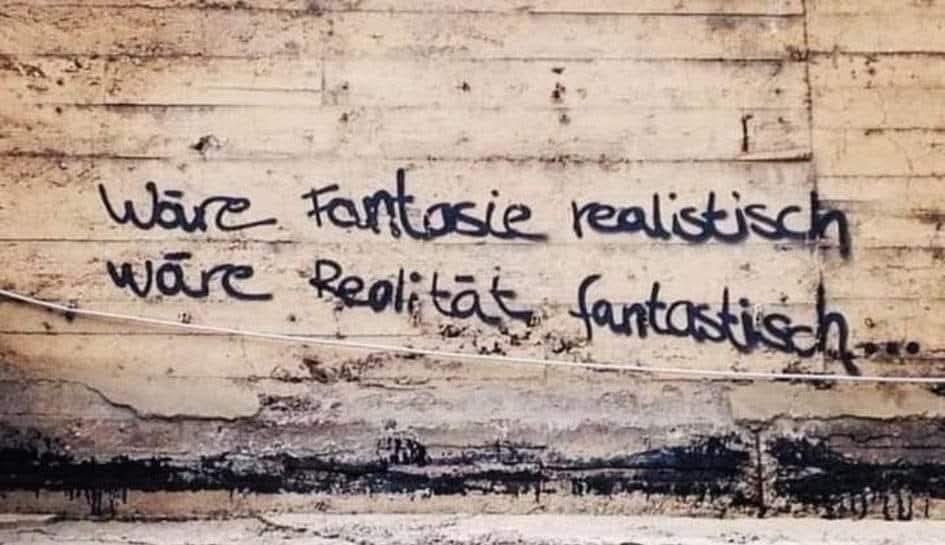 Wäre Fantasie realistisch
wäre Realität fantastisch...